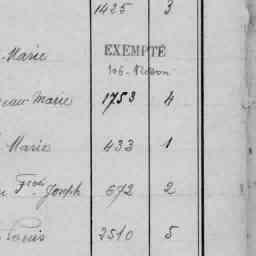 1425 3
Marie EXEMPTÉ
Marie 1753 4
Marie 433 1
Joseph 672 2
Louis 2510 5